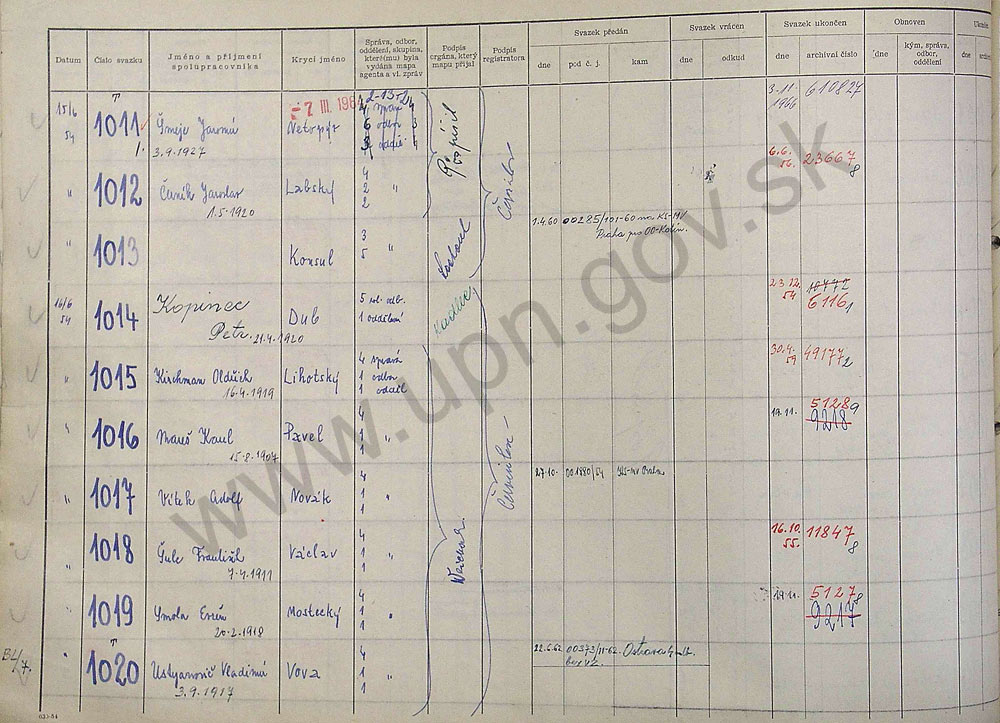 Datum
Číslo svazku
Jméno a příjmení
spolupracovníka
Krycí jméno
Správa, odbor,
oddělení, skupina,
které(mu) byla
vydána mapa
agenta a vl. zpráv
Podpis
orgána, který
mapu přijal
Podpis
registratora
Svazek předán
dne
pod č. j.
kam
Svazek vrácen
dne
odkud
Svazek ukončen
dne
archivní číslo
Obnoven
dne
kým, správa,
odbor,
oddělení
dne
15/6
54
1011
Šmejc Jaromír
3.9.1927
7 III. 196
Netopýr
3-11-
1966
610827
" 1012
Černík Jaroslav
1.5.1920
Labský
4
2
2
"
6.6.
56.
23667
8
" 1013
Konsul
3
5 "
1.4.60 00285/101-60 na KS-MV
Praha pro OO-Kolín.
16/6
54
1014
Kopinec
Petr. 21.4.1920
Dub
5 sol. odb.
1 oddělení
Kadlec
23.12.
54
18772
6116 1
" 1015
Kirchman Oldřich
16.4.1919
Lihotský
4 správa
1 odbor
1 odděl
30.4.
59
49177 2
" 1016
Mareš Karel
15.8.1907
Pavel
4
1 "
1
19.11.
5128 9
9218
" 1017
Vítek Adolf
Novák
4
1 "
1
27.10. 001880/54 KS-MV Praha
" 1018
Šulc František
7.4.1911
Václav
4
1 "
1
16.10.
55.
11847 8
" 1019
Smola Evžen
20.2.1918
Mostecký
4
1 "
1
19.11.
5127 8
9217
" 1020
Ustyanovič Vladimír
3.9.1917
Vova
4
1 "
1
22.6.62 00373/11-62. Ostrava
www.upn.gov.sk